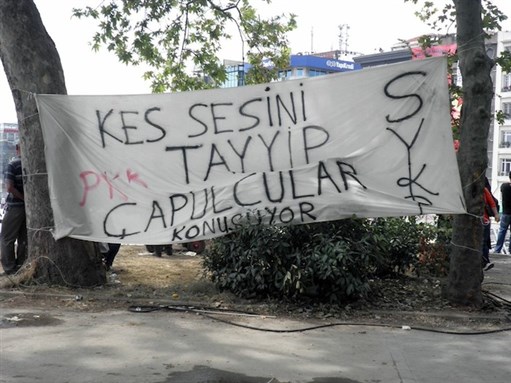 KES SESİNİ
TAYYİP
PKK
ÇAPULCULAR
KONUŞUYOR
SYKP